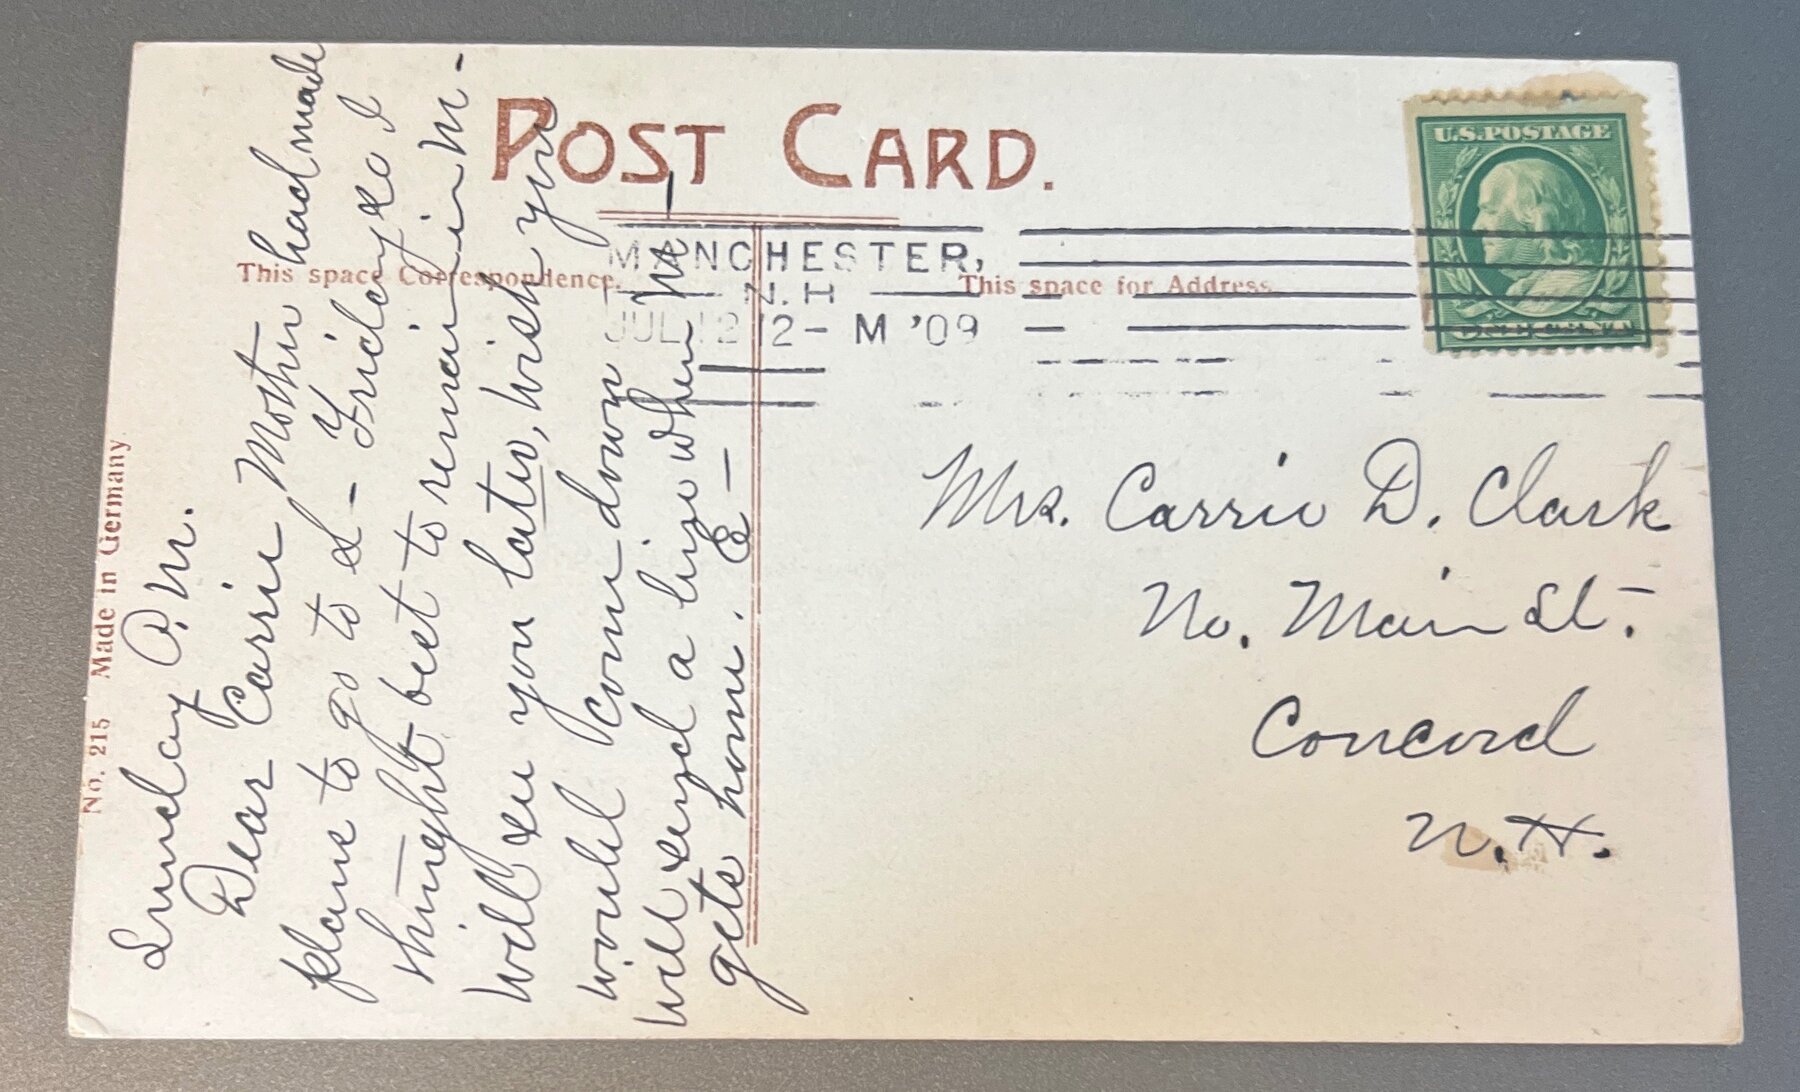 POST CARD.
This space Correspondence.
This space for Address.
No. 215 Made in Germany
U.S. POSTAGE
MANCHESTER,
N.H
JUL 12 12 - M '09
Sunday P.M.
Dear Carrie Mother had made
plans to go to L- Friday so I
thought best to remain in M-
Will see you later, wish you
would come down
will send a line when M
gets home. E-
Mrs. Carrie D. Clark
No. Main St.
Concord
N.H.